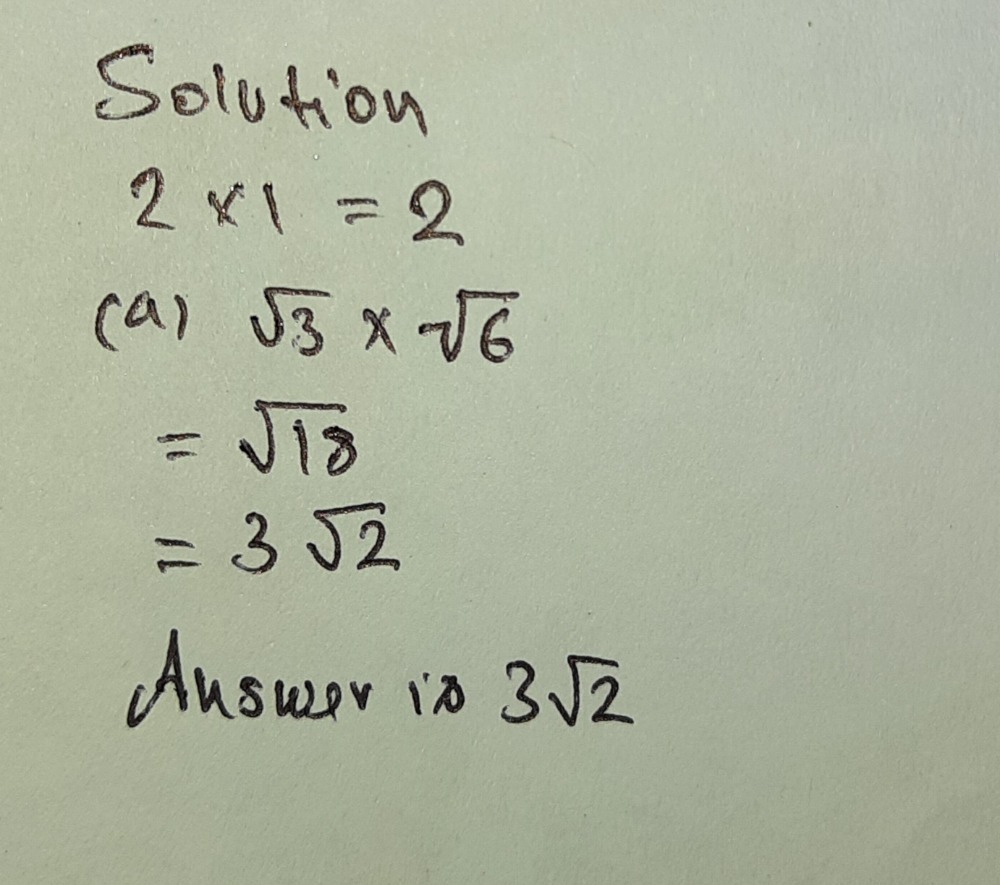 Solution
2 x 1 = 2
(a) √3 x √6
= √18
= 3√2
Answer is 3√2